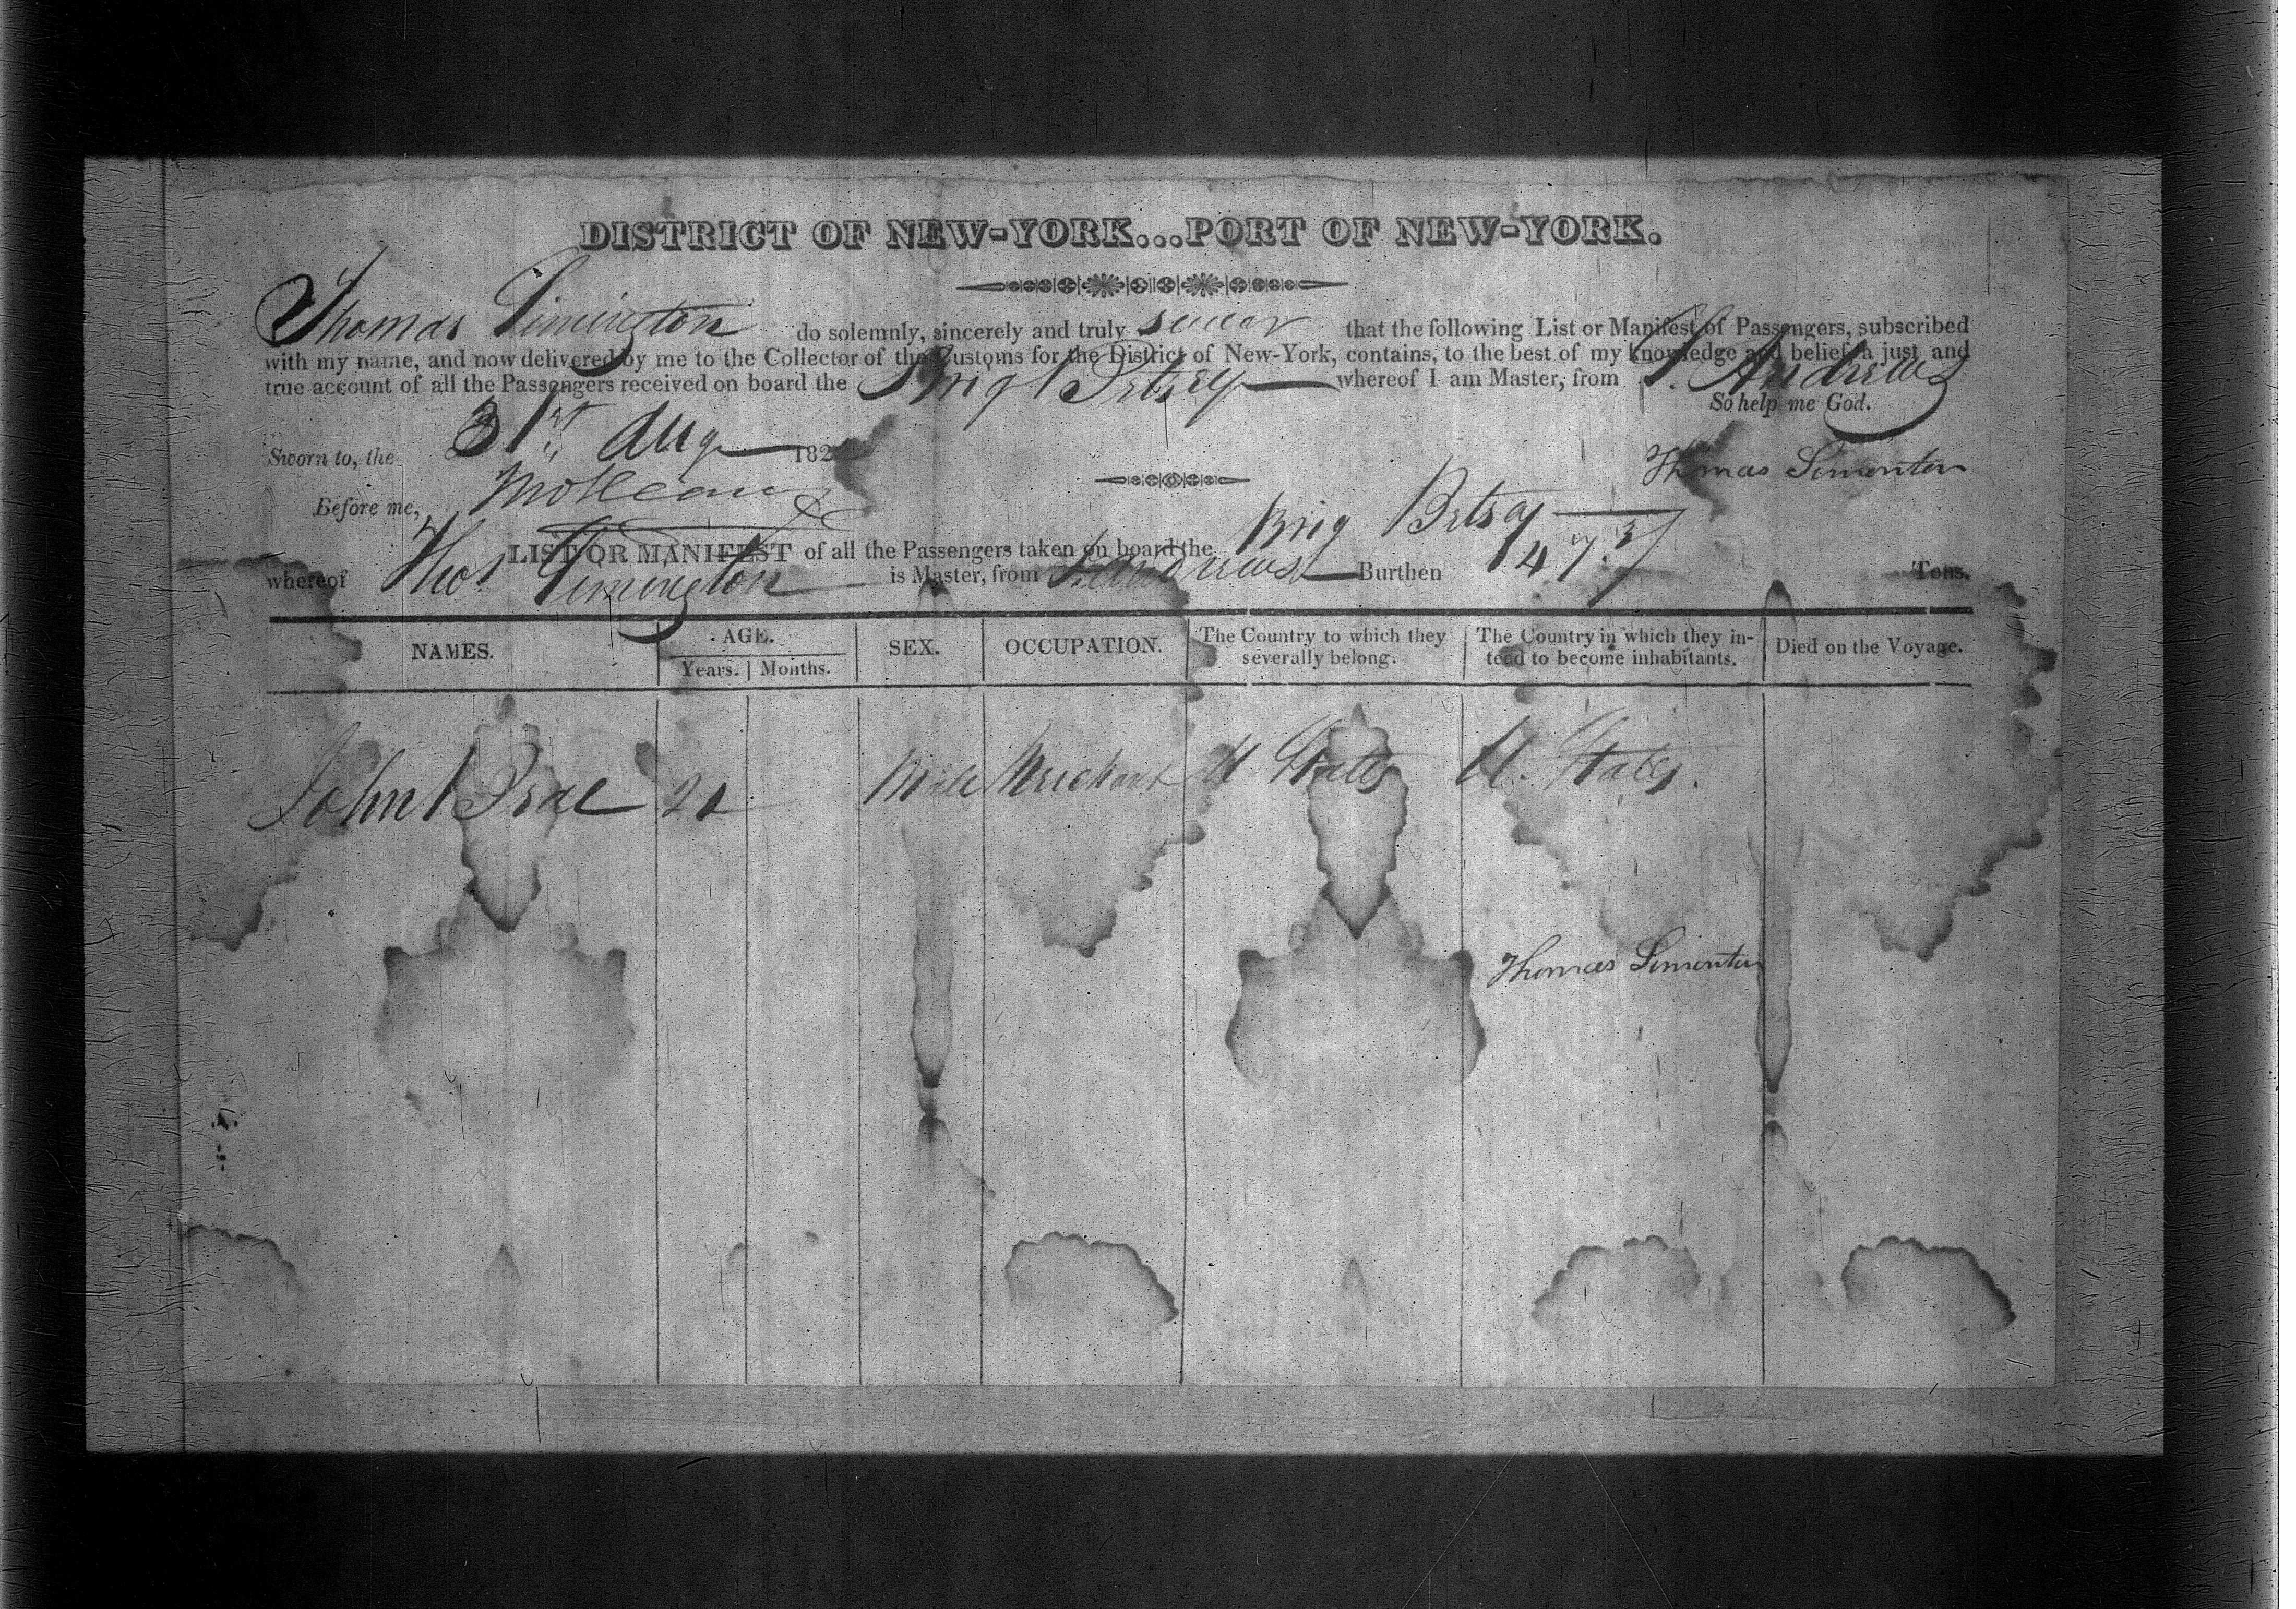 DISTRICT OF NEW-YORK...PORT OF NEW-YORK.
Thomas Limington do solemnly, sincerely and truly swear that the following List or Manifest of Passengers, subscribed
with my name, and now delivered by me to the Collector of the Customs for the District of New-York, contains, to the best of my knowledge and belief, a just and
true account of all the Passengers received on board the Brig Betsey whereof I am Master, from St. Andrews
So help me God.
Sworn to, the 31st Aug 182
Thomas Simonton
Before me,
LIST OR MANIFEST of all the Passengers taken on board the Brig Betsey
whereof Thos Limington is Master, from St. Andrews Burthen 147 Tons.
NAMES. AGE. Years. Months. SEX. OCCUPATION. The Country to which they severally belong. The Country in which they intend to become inhabitants. Died on the Voyage.
John Male Merchant U States U. States.
Thomas Simonton